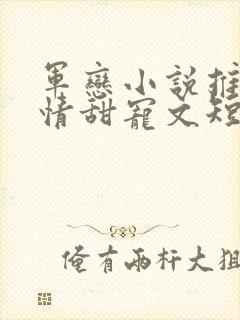 軍戀小説推
情甜寵文短
俺有兩杆大狙